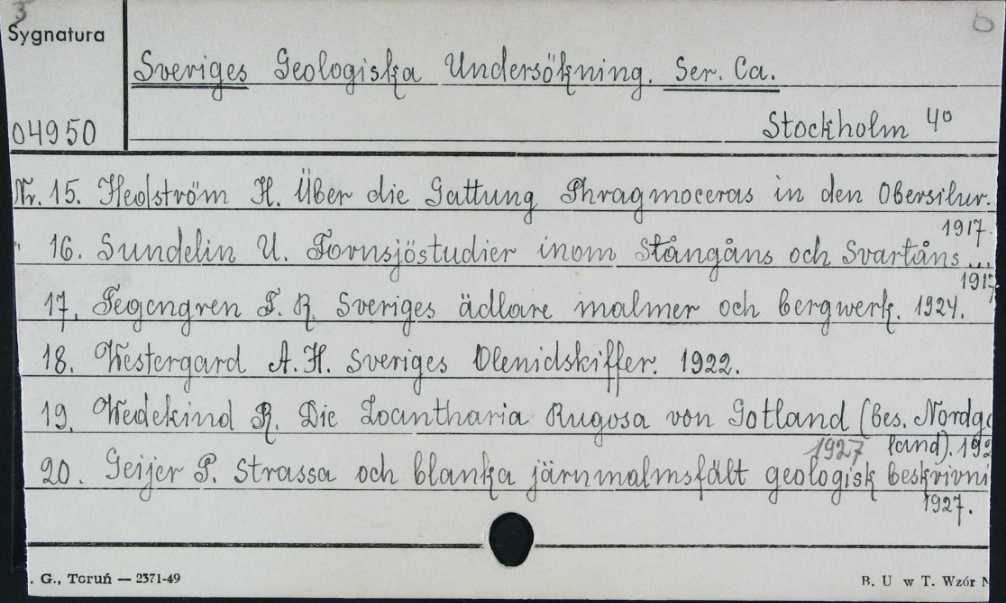 3
Sygnatura
Sveriges Geologiska Undersökning. Ser. Ca.
04950
Stockholm 4°
Nr. 15. Hedström H. Über die Gattung Phragmoceras in den Obersilur.
1917.
" 16. Sundelin U. Fornsjöstudier inom Stångåns och Svartåns ...
1917
17. Tegengren F. R. Sveriges ädlare malmer och bergwerk. 1924.
18. Westergard A. H. Sveriges Olenidskiffer. 1922.
19. Wedekind R. Die Zoantharia Rugosa von Gotland (bes. Nordgo
1927 land). 192
20. Geijer P. Strassa och blanka järnmalmsfält geologisk beskrivni
1927.
. G., Toruń — 2371-49
B. U w T. Wzór N